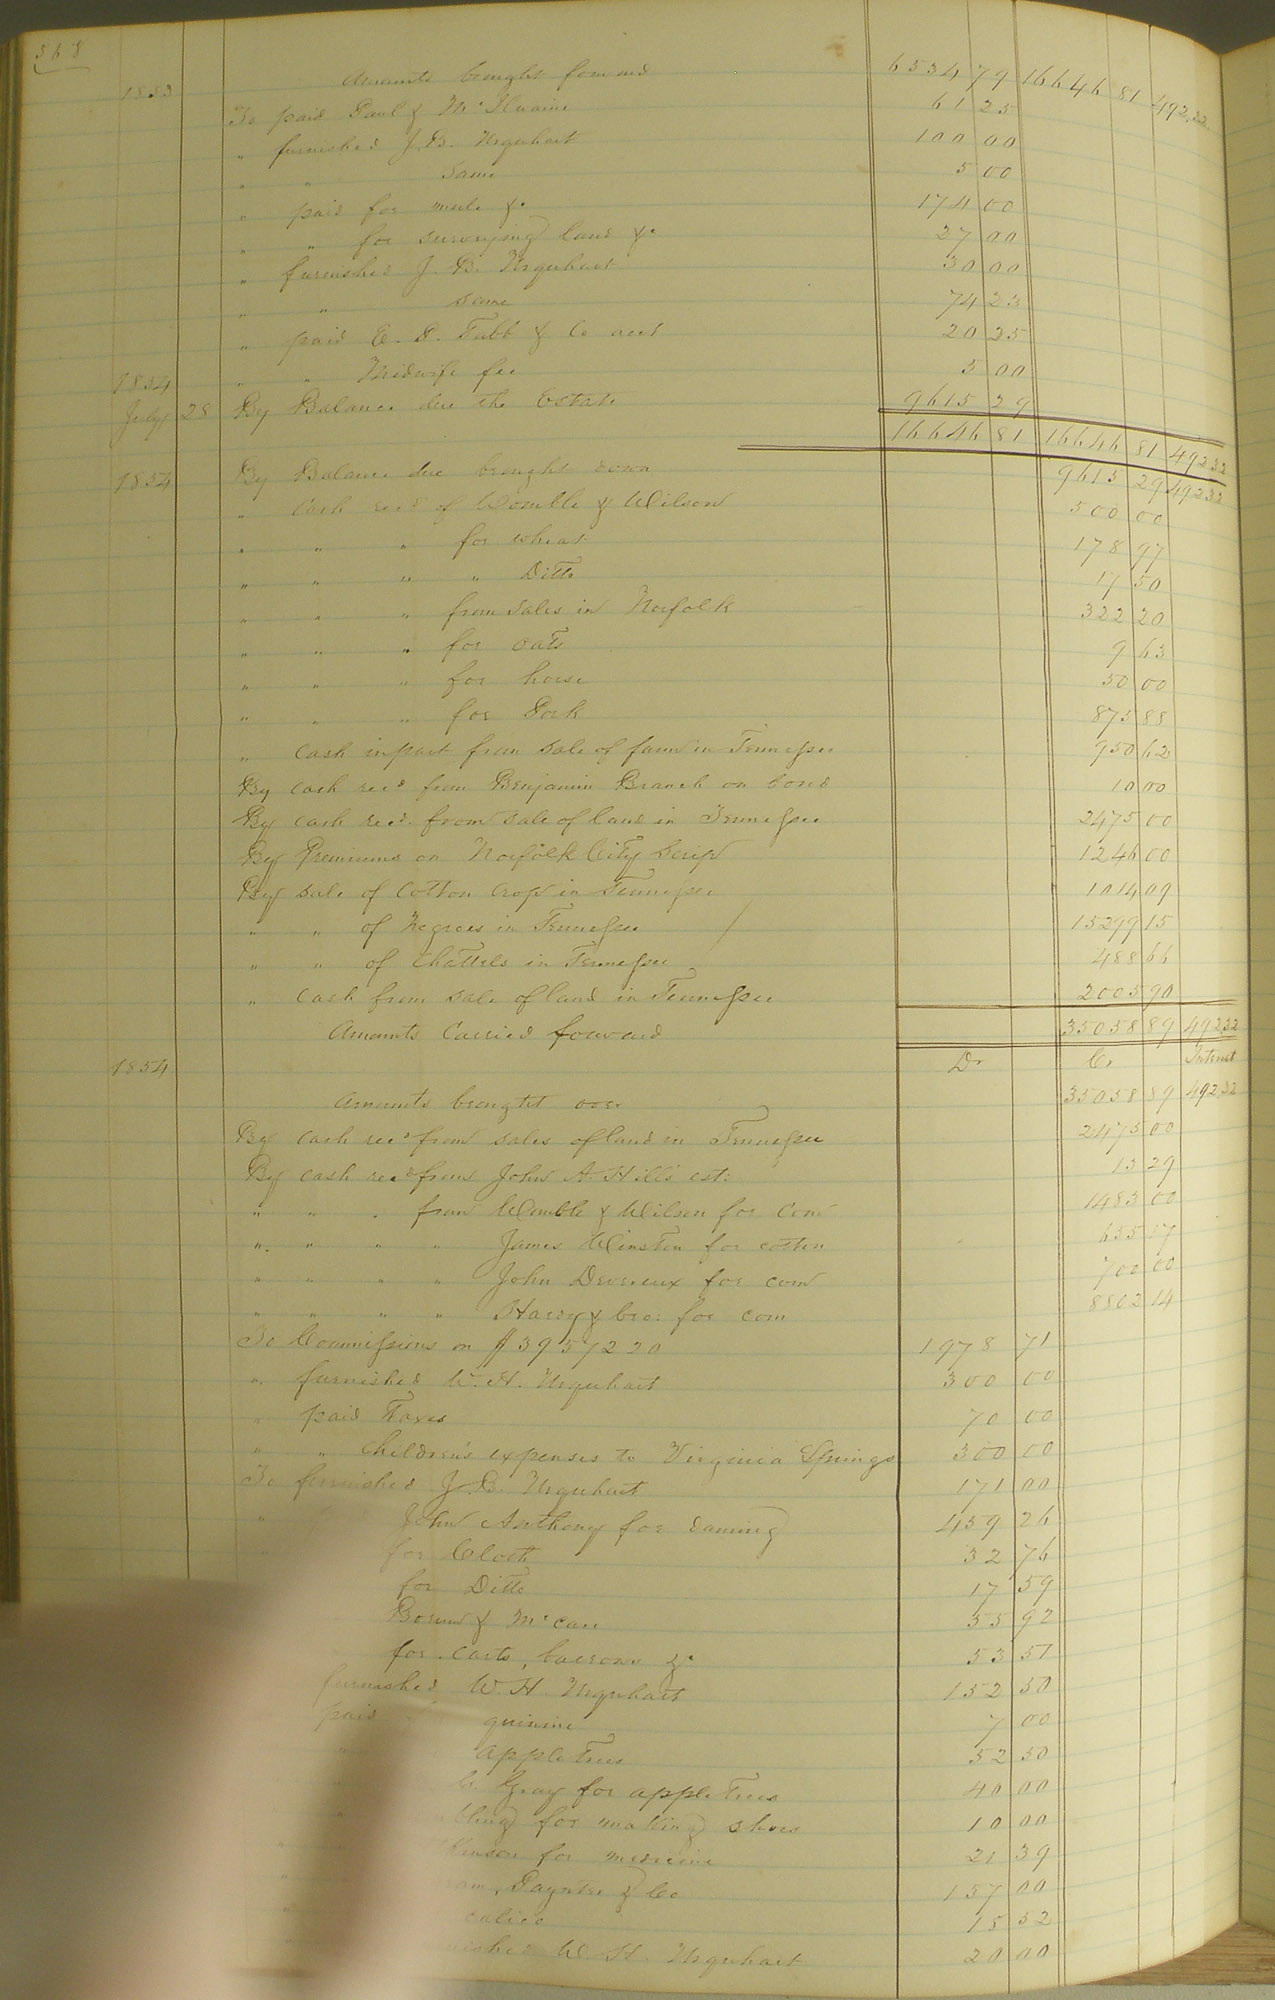 568
1853 Amounts brought forward 6534 79 16646 81 492.32
To paid Paul & McIlwaine 61 25
" furnished J. B. Urquhart 100 00
" " Same 5 00
" paid for mule &c 174 00
" " for surveying land &c 27 00
" furnished J. B. Urquhart 30 00
" " same 74 23
" paid E. P. Tabb & Co acct 20 25
1854 " " Midwife fee 5 00
July 28 By Balance due the Estate 9615 29
16646 81 16646 81 492 32
1854 By Balance due brought down 9615 29 492 32
" Cash recd of Womble & Wilson 500 00
" " " for wheat 178 97
" " " " Ditto 17 50
" " " from sales in Norfolk 322 20
" " " for oats 9 63
" " " for horse 50 00
" " " for Pork 875 88
" cash in part from sale of farm in Tennessee 950 62
By cash recd from Benjamin Branch on bond 10 00
By cash recd from sale of land in Tennessee 2475 00
By Premiums on Norfolk City Scrip 1246 00
By sale of Cotton Crop in Tennessee 1014 09
" " of Negroes in Tennessee 15299 15
" " of Chattels in Tennessee 488 66
" Cash from sale of land in Tennessee 2005 90
Amounts Carried forward 35058 89 492 32
1854 Dr Cr Interest
Amounts brought over 35058 89 492 32
By cash recd from sales of land in Tennessee 2475 00
By cash recd from John A. Hill's est: 13 29
" " " from Womble & Wilson for corn 1483 00
" " " " James Winston for cotton 655 17
" " " " John Devereux for corn 700 00
" " " " Hardy & bro: for corn 8802 14
To Commissions on $39572 20 1978 71
" furnished W. H. Urquhart 300 00
" paid Taxes 70 00
" " Children's expenses to Virginia Springs 300 00
To furnished J. B. Urquhart 171 00
" John Anthony for daming 459 26
for Cloth 32 76
for Ditto 17 59
Borum & McCan 55 92
for carts, barrows &c 53 51
furnished W. H. Urquhart 152 50
paid quinine 7 00
apple trees 52 50
Gray for apple Trees 40 00
for making shoes 10 00
for medicine 21 39
Payntee & Co 157 00
calico 15 52
W. H. Urquhart 20 00